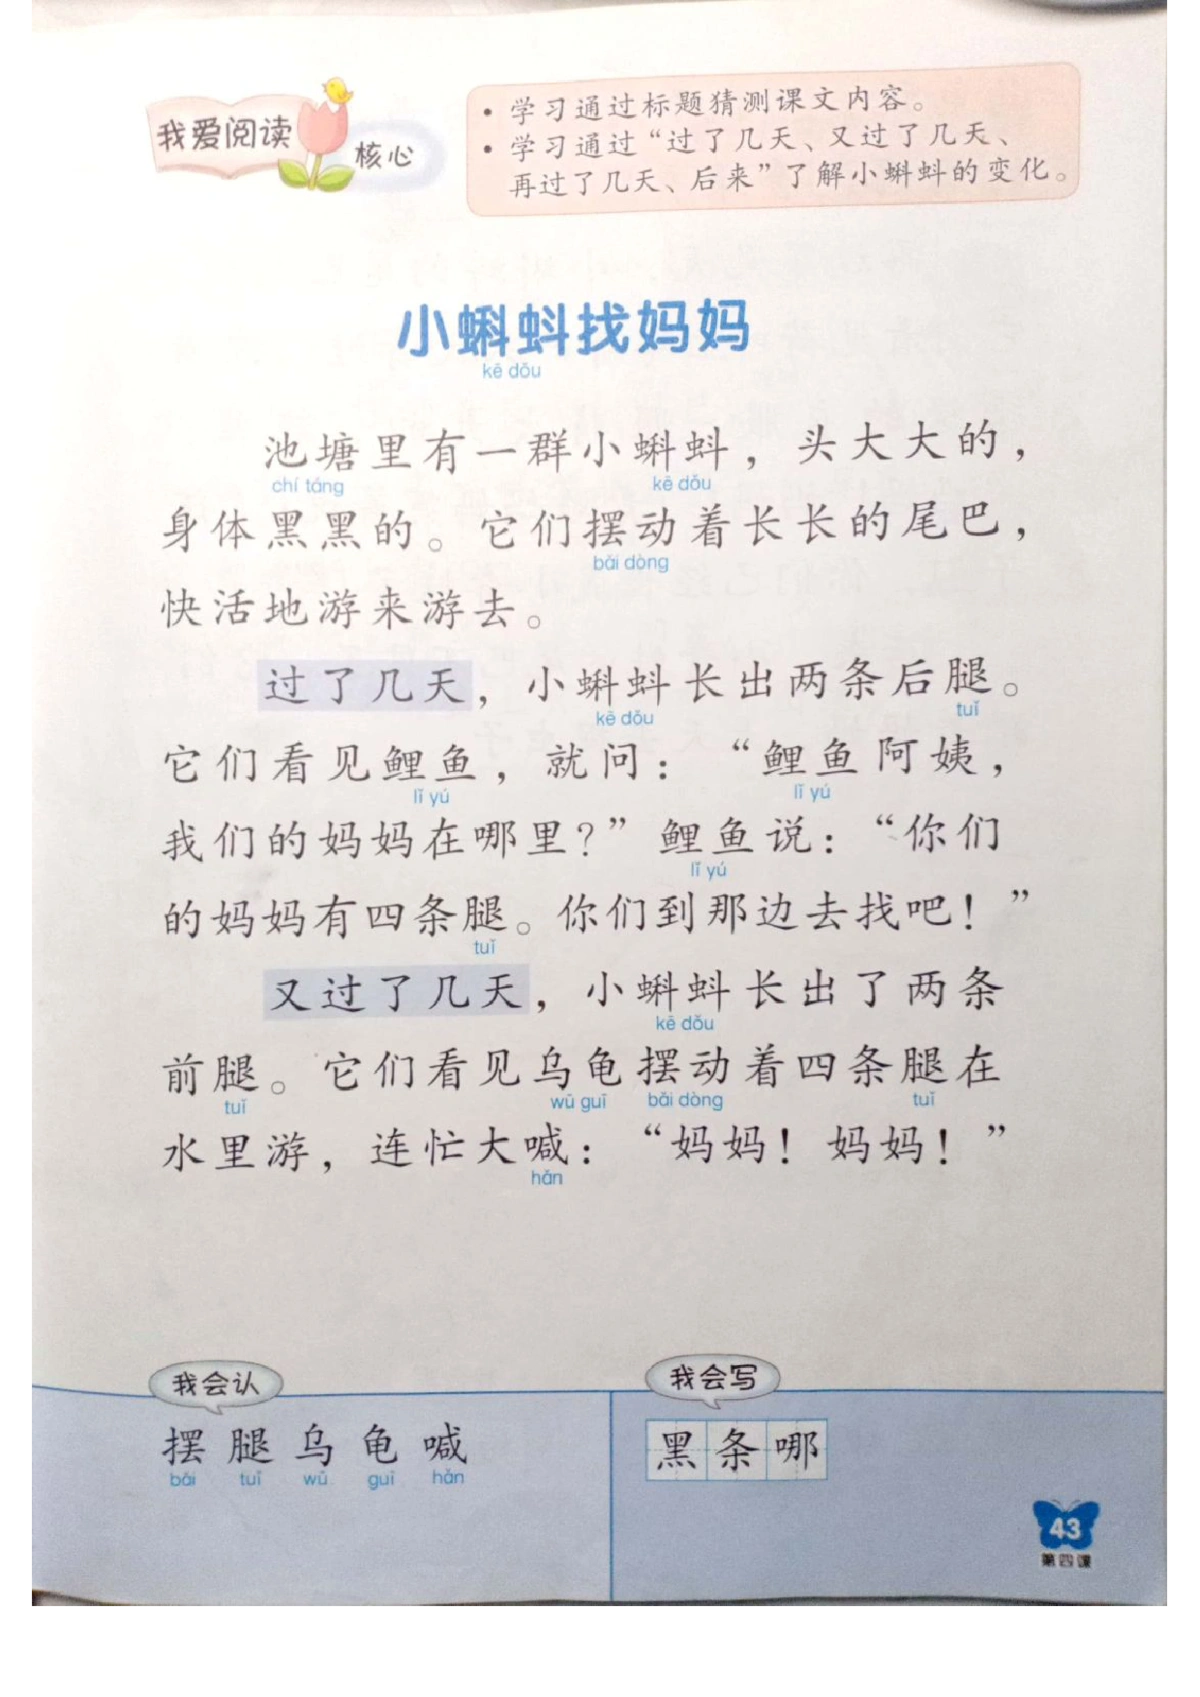 我爱阅读
核心
• 学习通过标题猜测课文内容。
• 学习通过“过了几天、又过了几天、
再过了几天、后来”了解小蝌蚪的变化。
小蝌蚪找妈妈
kē dǒu
池塘里有一群小蝌蚪，头大大的，
chí táng kē dǒu
身体黑黑的。它们摆动着长长的尾巴，
bǎi dòng
快活地游来游去。
过了几天，小蝌蚪长出两条后腿。
kē dǒu tuǐ
它们看见鲤鱼，就问：“鲤鱼阿姨，
lǐ yú lǐ yú
我们的妈妈在哪里？”鲤鱼说：“你们
lǐ yú
的妈妈有四条腿。你们到那边去找吧！”
tuǐ
又过了几天，小蝌蚪长出了两条
kē dǒu
前腿。它们看见乌龟摆动着四条腿在
tuǐ wū guī bǎi dòng tuǐ
水里游，连忙大喊：“妈妈！妈妈！”
hǎn
我会认
摆 腿 乌 龟 喊
bǎi tuǐ wū guī hǎn
我会写
黑 条 哪
43
第四课